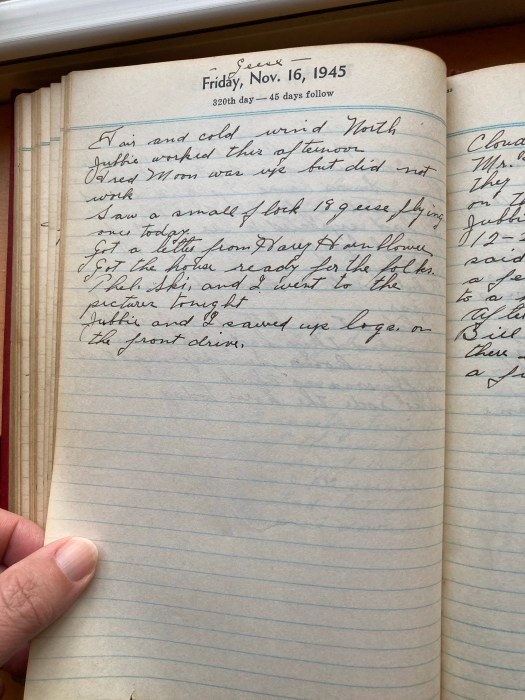 — Geese —
Friday, Nov. 16, 1945
320th day — 45 days follow
Fair and cold wind North
Jubbie worked this afternoon
Fred Moon was up but did not
work
Saw a small flock 18 geese flying
once today.
Got a letter from Harry Hornblower
Got the house ready for the folks.
Phel. Ski, and I went to the
pictures tonight
Jubbie and I sawed up logs on
the front drive.
Cloud
Mr.
they
on th
Jubbi
12-
said
a fe
to a
afte
Bill
there
a fi